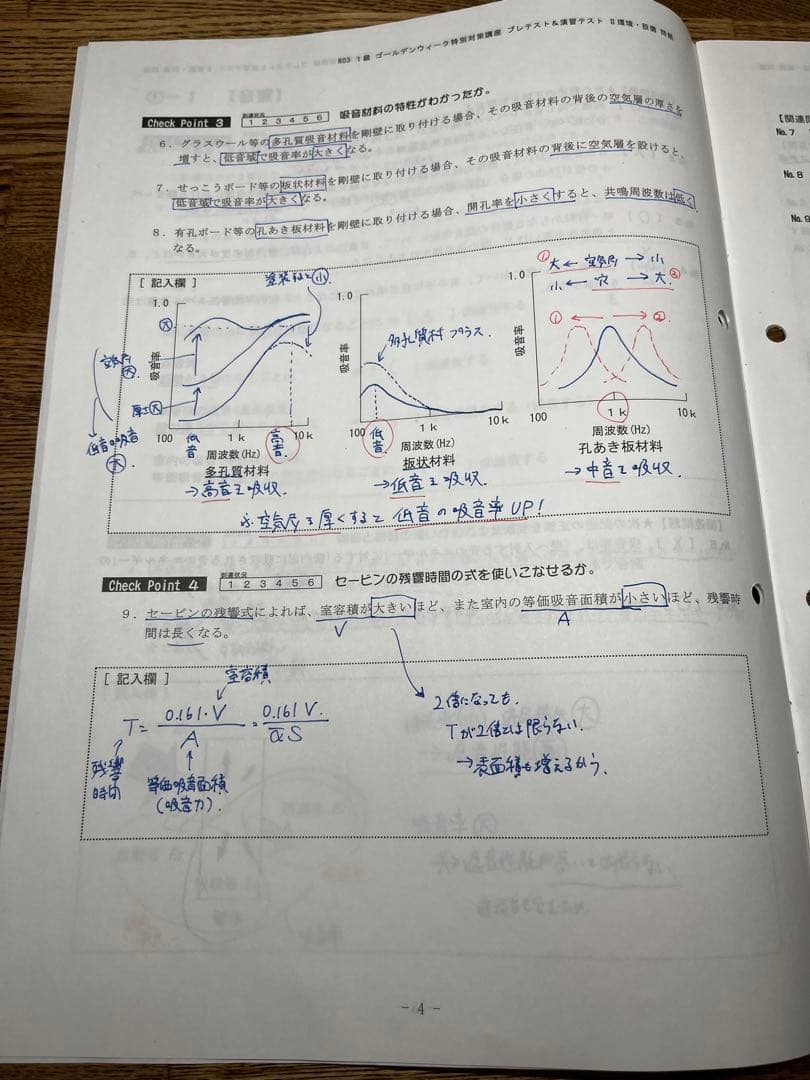 R03 1級 ゴールデンウィーク特別対策講座 プレテスト＆演習テスト Ⅱ環境・設備 問題
Check Point 3
到達状況
1 2 3 4 5 6
吸音材料の特性がわかったか。
6．グラスウール等の多孔質吸音材料を剛壁に取り付ける場合、その吸音材料の背後の空気層の厚さを
増すと、低音域で吸音率が大きくなる。
7．せっこうボード等の板状材料を剛壁に取り付ける場合、その吸音材料の背後に空気層を設けると、
低音域で吸音率が大きくなる。
8．有孔ボード等の孔あき板材料を剛壁に取り付ける場合、開孔率を小さくすると、共鳴周波数は低く
なる。
[ 記入欄 ]
塗装すると小
1.0
大
空気層
大
吸音率
厚さ大
低音の吸音
大
100
低音
1k
高音
10k
周波数(Hz)
多孔質材料
→高音を吸収.
1.0
吸音率
多孔質材プラス.
100
低音
1k
10k
周波数(Hz)
板状材料
→低音を吸収.
① 大 ← 空気層 → 小
小 ← 穴 → 大 ②
1.0
吸音率
① ← → ②
100
1k
10k
周波数(Hz)
孔あき板材料
→中音を吸収.
※空気層を厚くすると 低音の吸音率UP!
Check Point 4
到達状況
1 2 3 4 5 6
セービンの残響時間の式を使いこなせるか。
9．セービンの残響式によれば、室容積が大きいほど、また室内の等価吸音面積が小さいほど、残響時
V
A
間は長くなる。
[ 記入欄 ]
室容積
T= 0.161・V / A = 0.161 V. / ᾱS
残響時間
等価吸音面積
(吸音力).
2倍になっても.
Tが2倍とは限らない.
→表面積も増えるから.
- 4 -
【関連
No.7
No.8
No.9